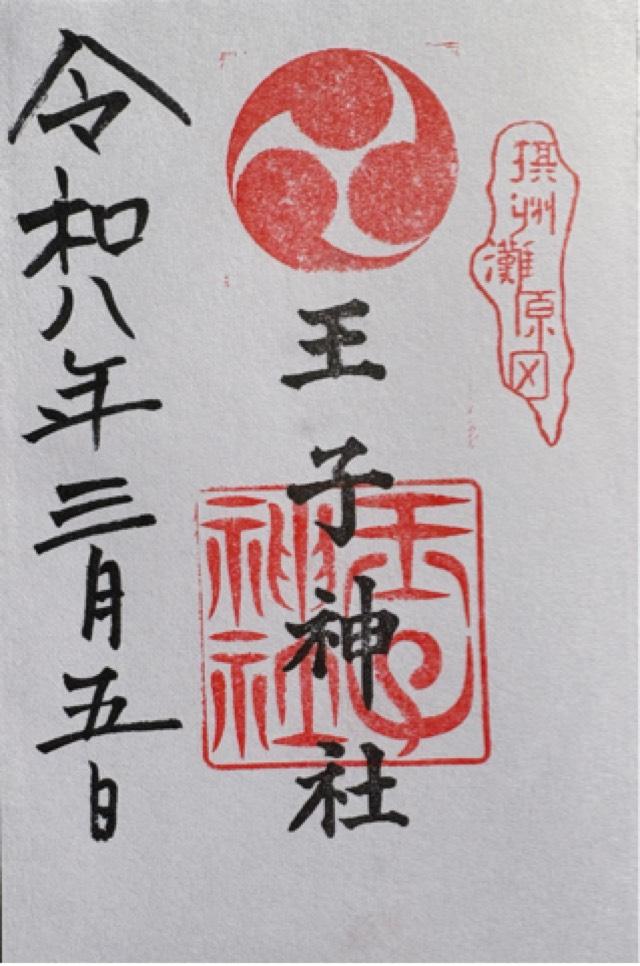 摂州灘原田
王子神社
王子
神社
令和八年三月五日